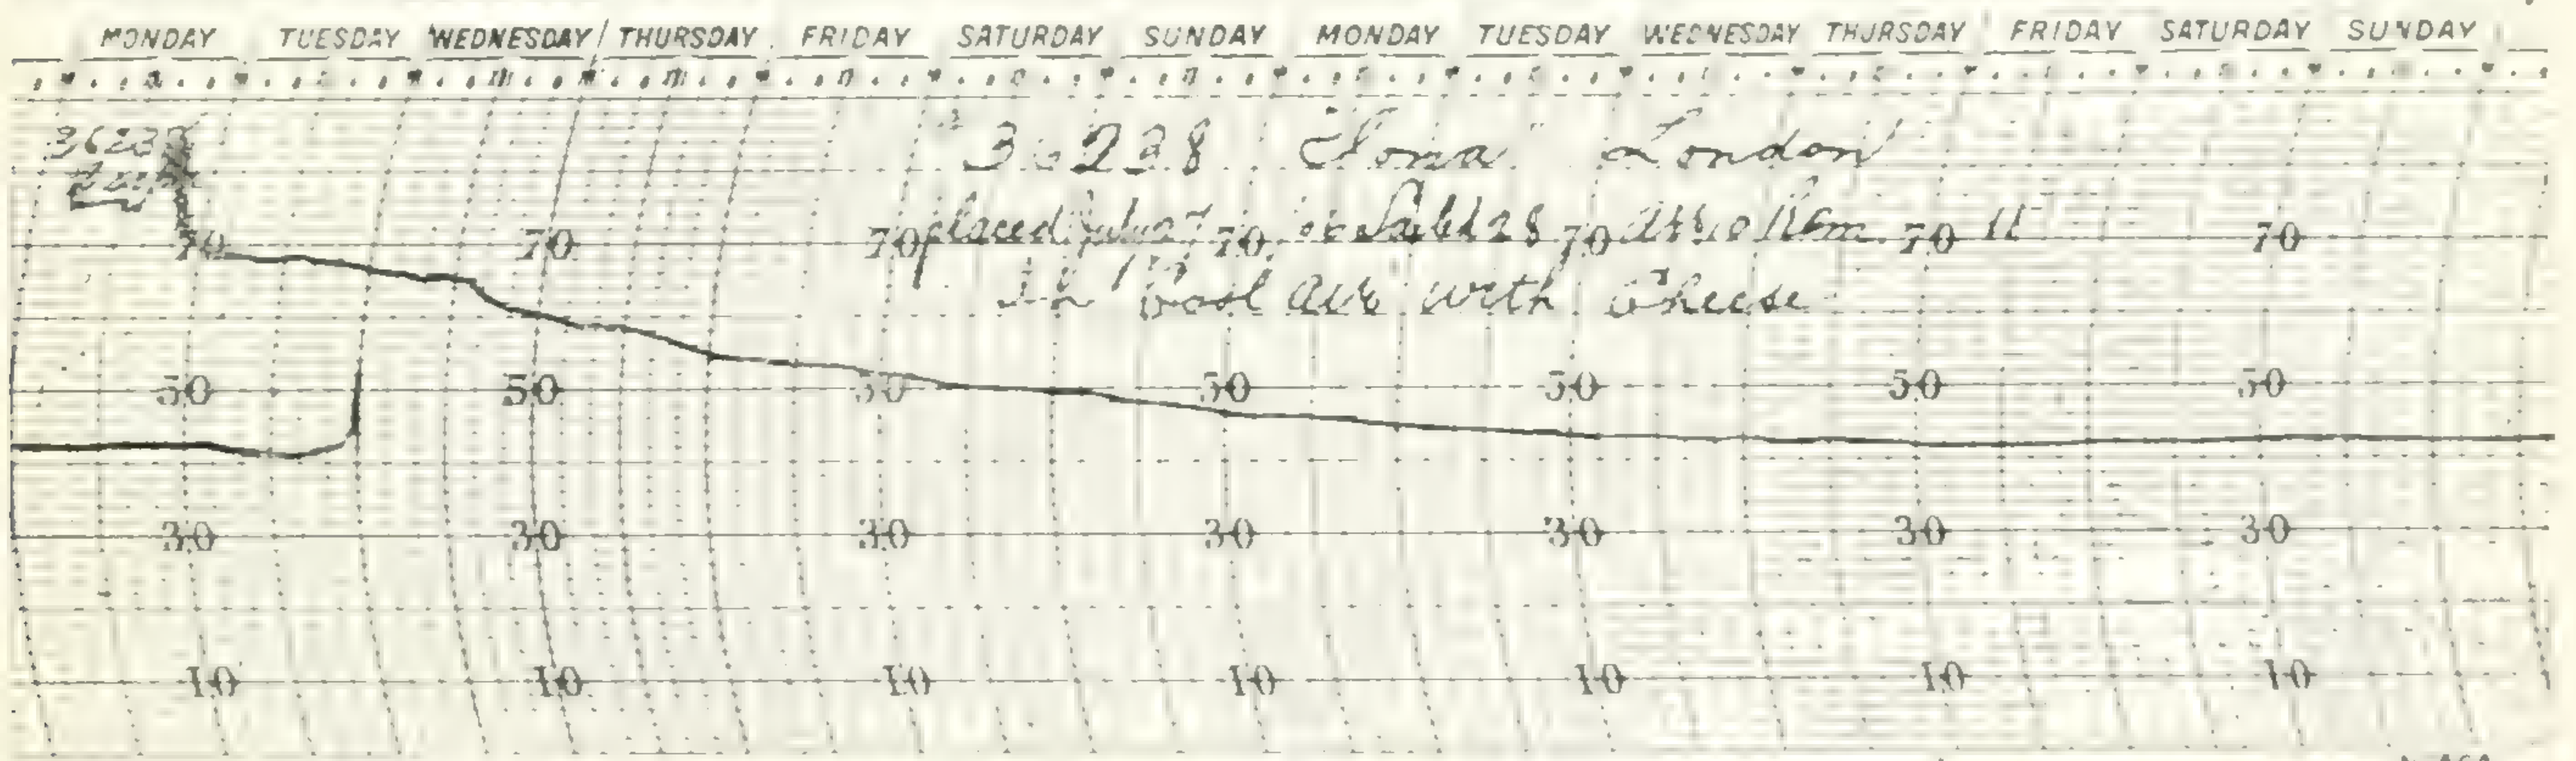 MONDAY TUESDAY WEDNESDAY THURSDAY FRIDAY SATURDAY SUNDAY MONDAY TUESDAY WEDNESDAY THURSDAY FRIDAY SATURDAY SUNDAY
36238 "Iona" London
70 70 70 placed 70 70 70 70
In Cool air with Cheese
50 50 50 50 50 50 50
30 30 30 30 30 30 30
10 10 10 10 10 10 10